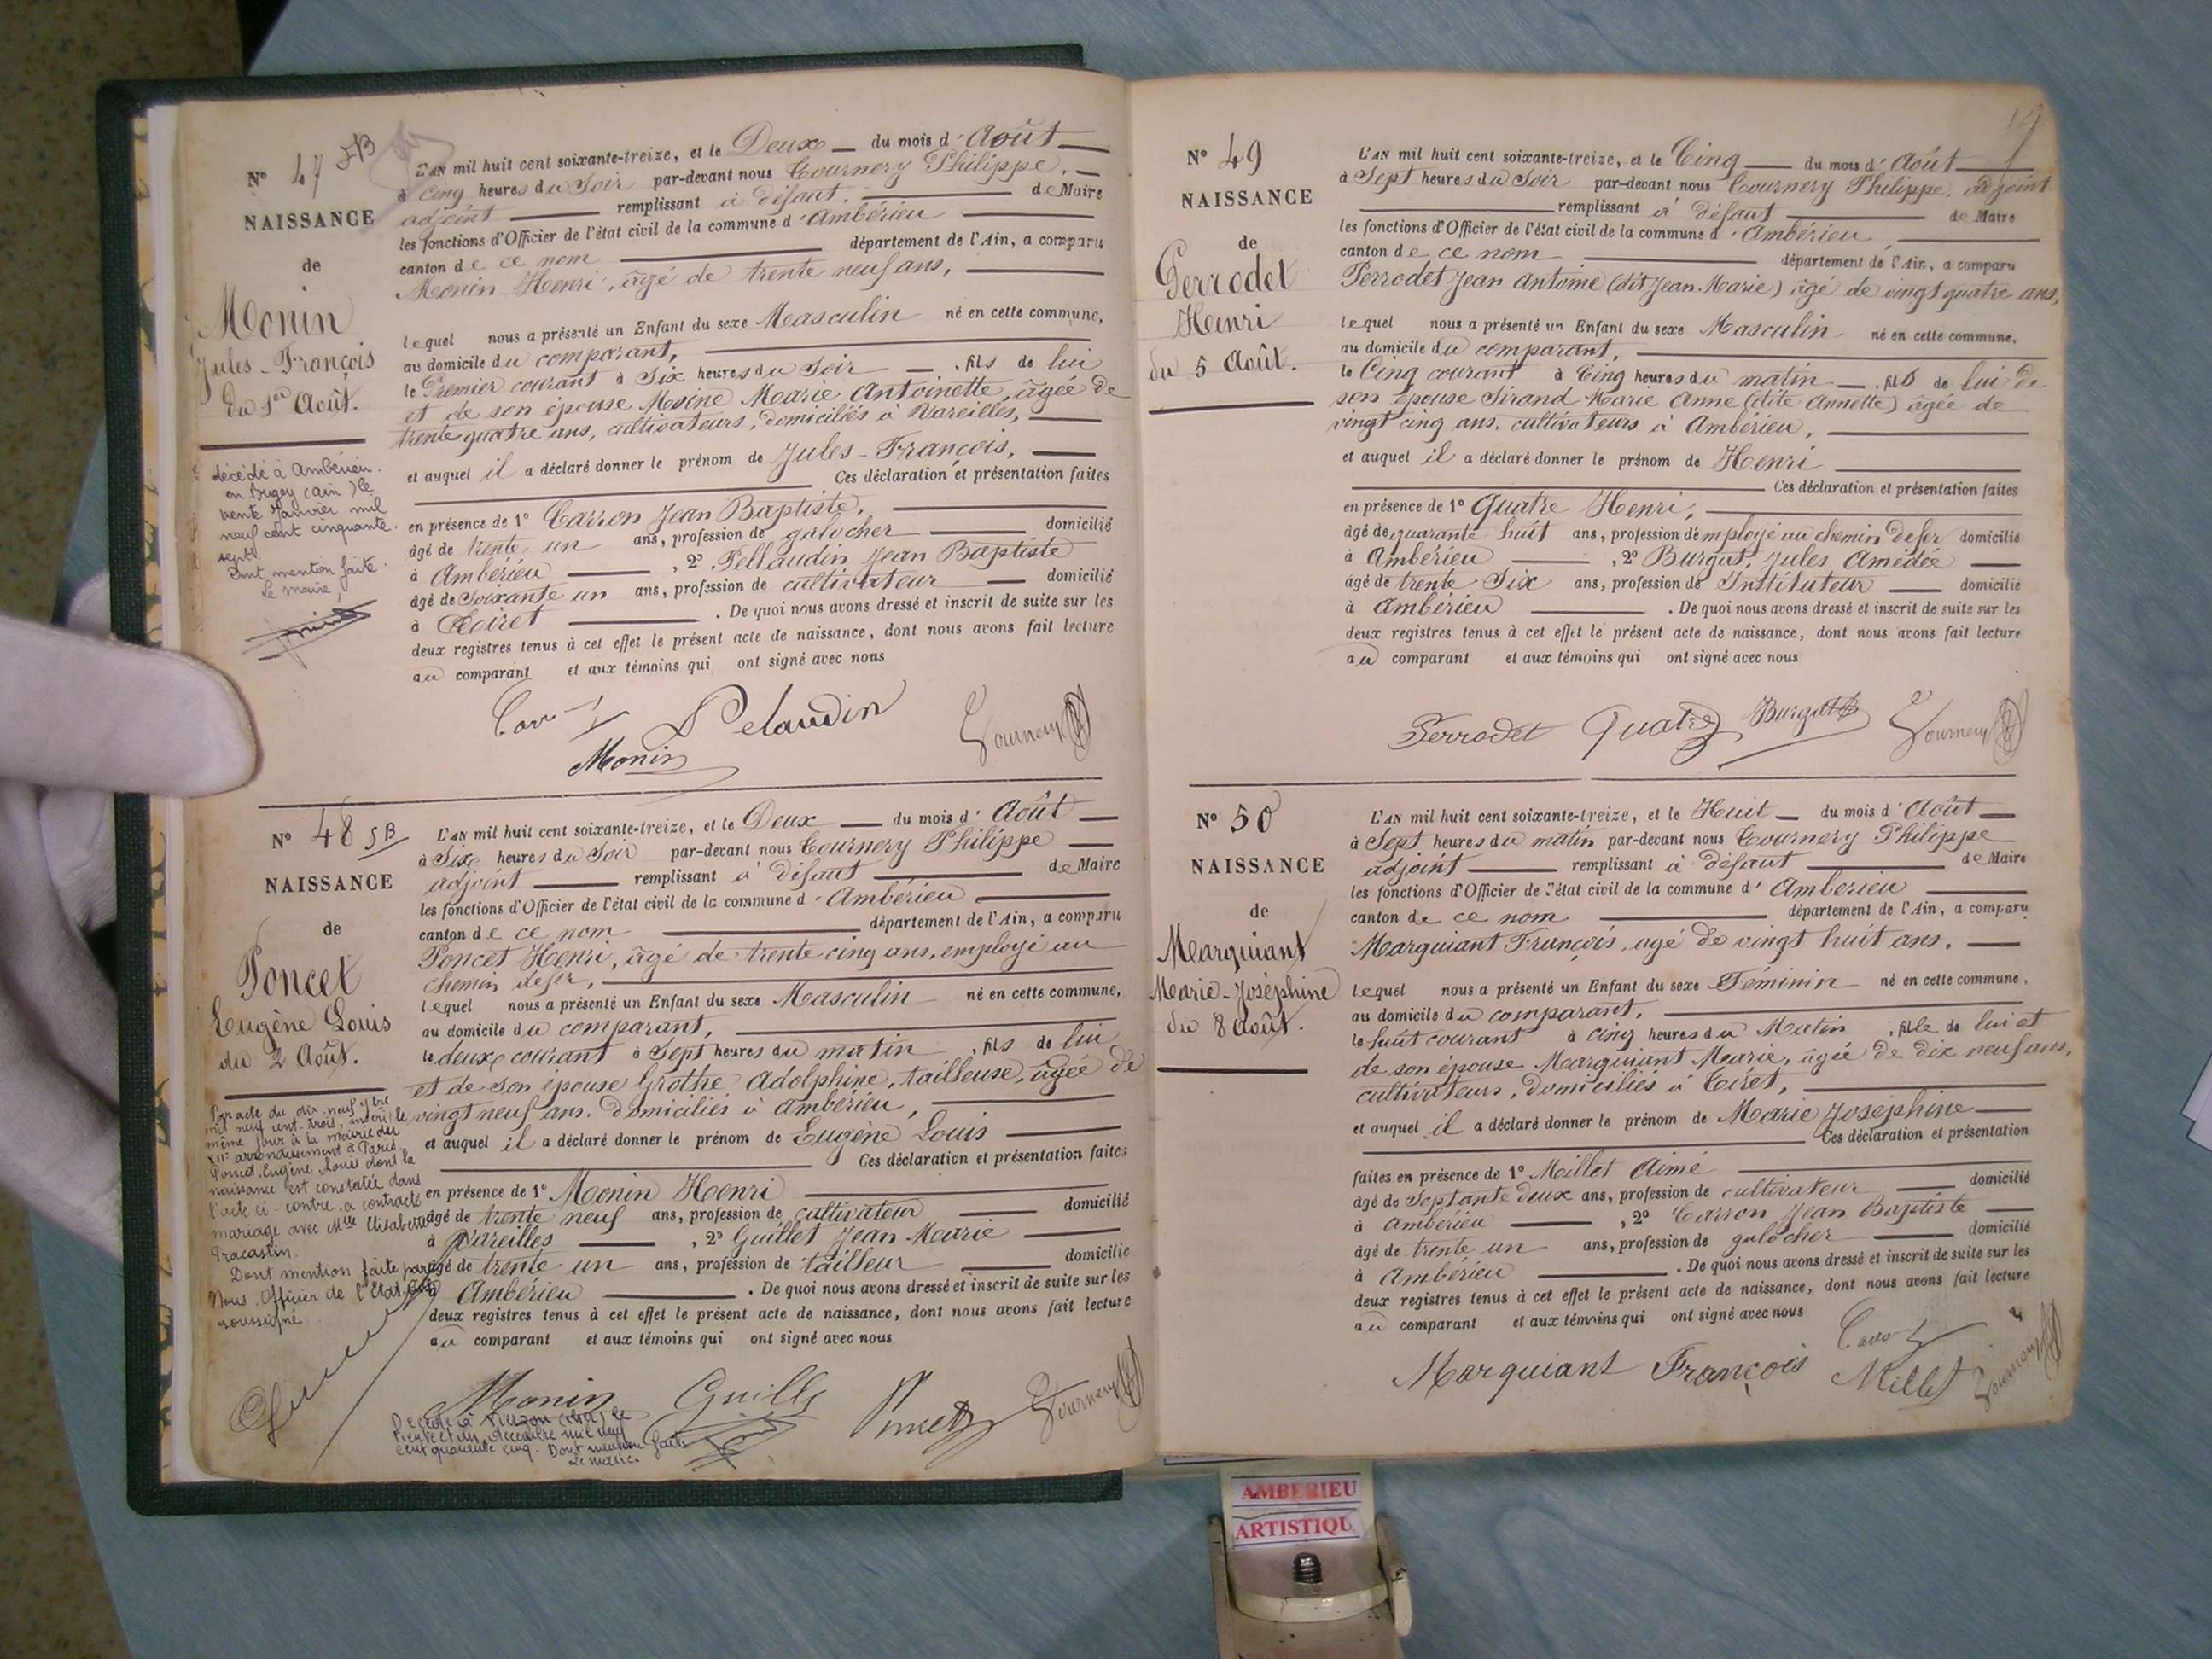 N° 47
NAISSANCE
de
Monin
Jules-François
du 1er Août.
décédé à Ambérieu.
en Bugey (ain) le
trente Janvier mil
neuf cent cinquante.
sept.
Dont mention faite.
Le maire,
L'AN mil huit cent soixante-treize, et le Deux du mois d'Août
à Cinq heures du Soir par-devant nous Tournery Philippe,
adjoint remplissant à défaut de Maire
les fonctions d'Officier de l'état civil de la commune d'Ambérieu
canton de ce nom département de l'Ain, a comparu
Monin Henri, âgé de trente neuf ans,
lequel nous a présenté un Enfant du sexe Masculin né en cette commune,
au domicile du comparant,
le Premier courant à Six heures du Soir, fils de lui
et de son épouse Moine Marie Antoinette, âgée de
trente quatre ans, cultivateurs, domiciliés à Vareilles,
et auquel il a déclaré donner le prénom de Jules-François,
Ces déclaration et présentation faites
en présence de 1° Carron Jean Baptiste,
âgé de trente un ans, profession de galocher domicilié
à Ambérieu, 2° Pellaudin Jean Baptiste
âgé de Soixante un ans, profession de cultivateur domicilié
à . De quoi nous avons dressé et inscrit de suite sur les
deux registres tenus à cet effet le présent acte de naissance, dont nous avons fait lecture
au comparant et aux témoins qui ont signé avec nous
Pelaudin
Monin
Tournery
N° 48
NAISSANCE
de
Poncet
Eugène Louis
du 2 Août.
Par acte du dix-neuf 9bre
mil neuf cent trois, inscrit le
même jour à la mairie du
XIIe arrondissement à Paris
Poncet Eugène Louis dont la
naissance est constatée dans
l'acte ci-contre, a contracté
mariage avec Mlle Elisabeth
Tracastin.
Dont mention faite par
Nous Officier de l'Etat Civil
soussigné
L'AN mil huit cent soixante-treize, et le Deux du mois d'Août
à Six heures du Soir par-devant nous Tournery Philippe
adjoint remplissant à défaut de Maire
les fonctions d'Officier de l'état civil de la commune d'Ambérieu
canton de ce nom département de l'Ain, a comparu
Poncet Henri, âgé de trente cinq ans, employé au
chemin defer,
lequel nous a présenté un Enfant du sexe Masculin né en cette commune,
au domicile du comparant,
le deux courant à Sept heures du matin, fils de lui
et de son épouse Grothe Adolphine, tailleuse, âgée de
vingt neuf ans. domiciliés à ambérieu,
et auquel il a déclaré donner le prénom de Eugène Louis
Ces déclaration et présentation faites
en présence de 1° Monin Henri
âgé de trente neuf ans, profession de cultivateur domicilié
à Vareilles, 2° Guillet Jean Marie
âgé de trente un ans, profession de tailleur domicilié
Ambérieu. De quoi nous avons dressé et inscrit de suite sur les
deux registres tenus à cet effet le présent acte de naissance, dont nous avons fait lecture
au comparant et aux témoins qui ont signé avec nous
Monin Poncet Tournery
Décédé à Vierzon (cher) le
trente et un décembre mil neuf
cent quarante cinq. Dont mention faite
Le maire.
N° 49
NAISSANCE
de
Perrodet
Henri
du 5 Août.
L'AN mil huit cent soixante-treize, et le Cinq du mois d'Août
à Sept heures du Soir par-devant nous Tournery Philippe. adjoint
remplissant à défaut de Maire
les fonctions d'Officier de l'état civil de la commune d'Ambérieu,
canton de ce nom département de l'Ain, a comparu
Perrodet Jean Antoine (dit Jean Marie) âgé de vingt quatre ans,
lequel nous a présenté un Enfant du sexe Masculin né en cette commune,
au domicile du comparant,
le Cinq courant à Cinq heures du matin, fils de lui de
son épouse Sirand Marie Anne (dite Annette) âgée de
vingt cinq ans. cultivateurs à Ambérieu,
et auquel il a déclaré donner le prénom de Henri
Ces déclaration et présentation faites
en présence de 1° Quatre Henri,
âgé de quarante huit ans, profession d'employé au chemin defer domicilié
à Ambérieu, 2° Burgat, Jules Amédée
âgé de trente Six ans, profession de Instituteur domicilié
à Ambérieu. De quoi nous avons dressé et inscrit de suite sur les
deux registres tenus à cet effet le présent acte de naissance, dont nous avons fait lecture
au comparant et aux témoins qui ont signé avec nous
Perrodet Quatre Burgat Tournery
N° 50
NAISSANCE
de
Marquiant
Marie-Joséphine
du 8 août.
L'AN mil huit cent soixante-treize, et le Huit du mois d'Août
à Sept heures du matin par-devant nous Tournery Philippe
adjoint remplissant à défaut de Maire
les fonctions d'Officier de l'état civil de la commune d'Ambérieu
canton de ce nom département de l'Ain, a comparu
Marquiant François, agé de vingt huit ans.
lequel nous a présenté un Enfant du sexe Féminin né en cette commune,
au domicile du comparant,
le huit courant à cinq heures du Matin, fille de lui et
de son épouse Marquiant Marie, âgée de dix neuf ans,
cultivateurs, domiciliés à Tiret,
et auquel il a déclaré donner le prénom de Marie Joséphine
Ces déclaration et présentation
faites en présence de 1° Millet Aimé
âgé de Septante deux ans, profession de cultivateur domicilié
à ambérieu, 2° Carron Jean Baptiste
âgé de trente un ans, profession de galocher domicilié
à Ambérieu. De quoi nous avons dressé et inscrit de suite sur les
deux registres tenus à cet effet le présent acte de naissance, dont nous avons fait lecture
au comparant et aux témoins qui ont signé avec nous
Marquiant François Millet Tournery
AMBERIEU
ARTISTIQU